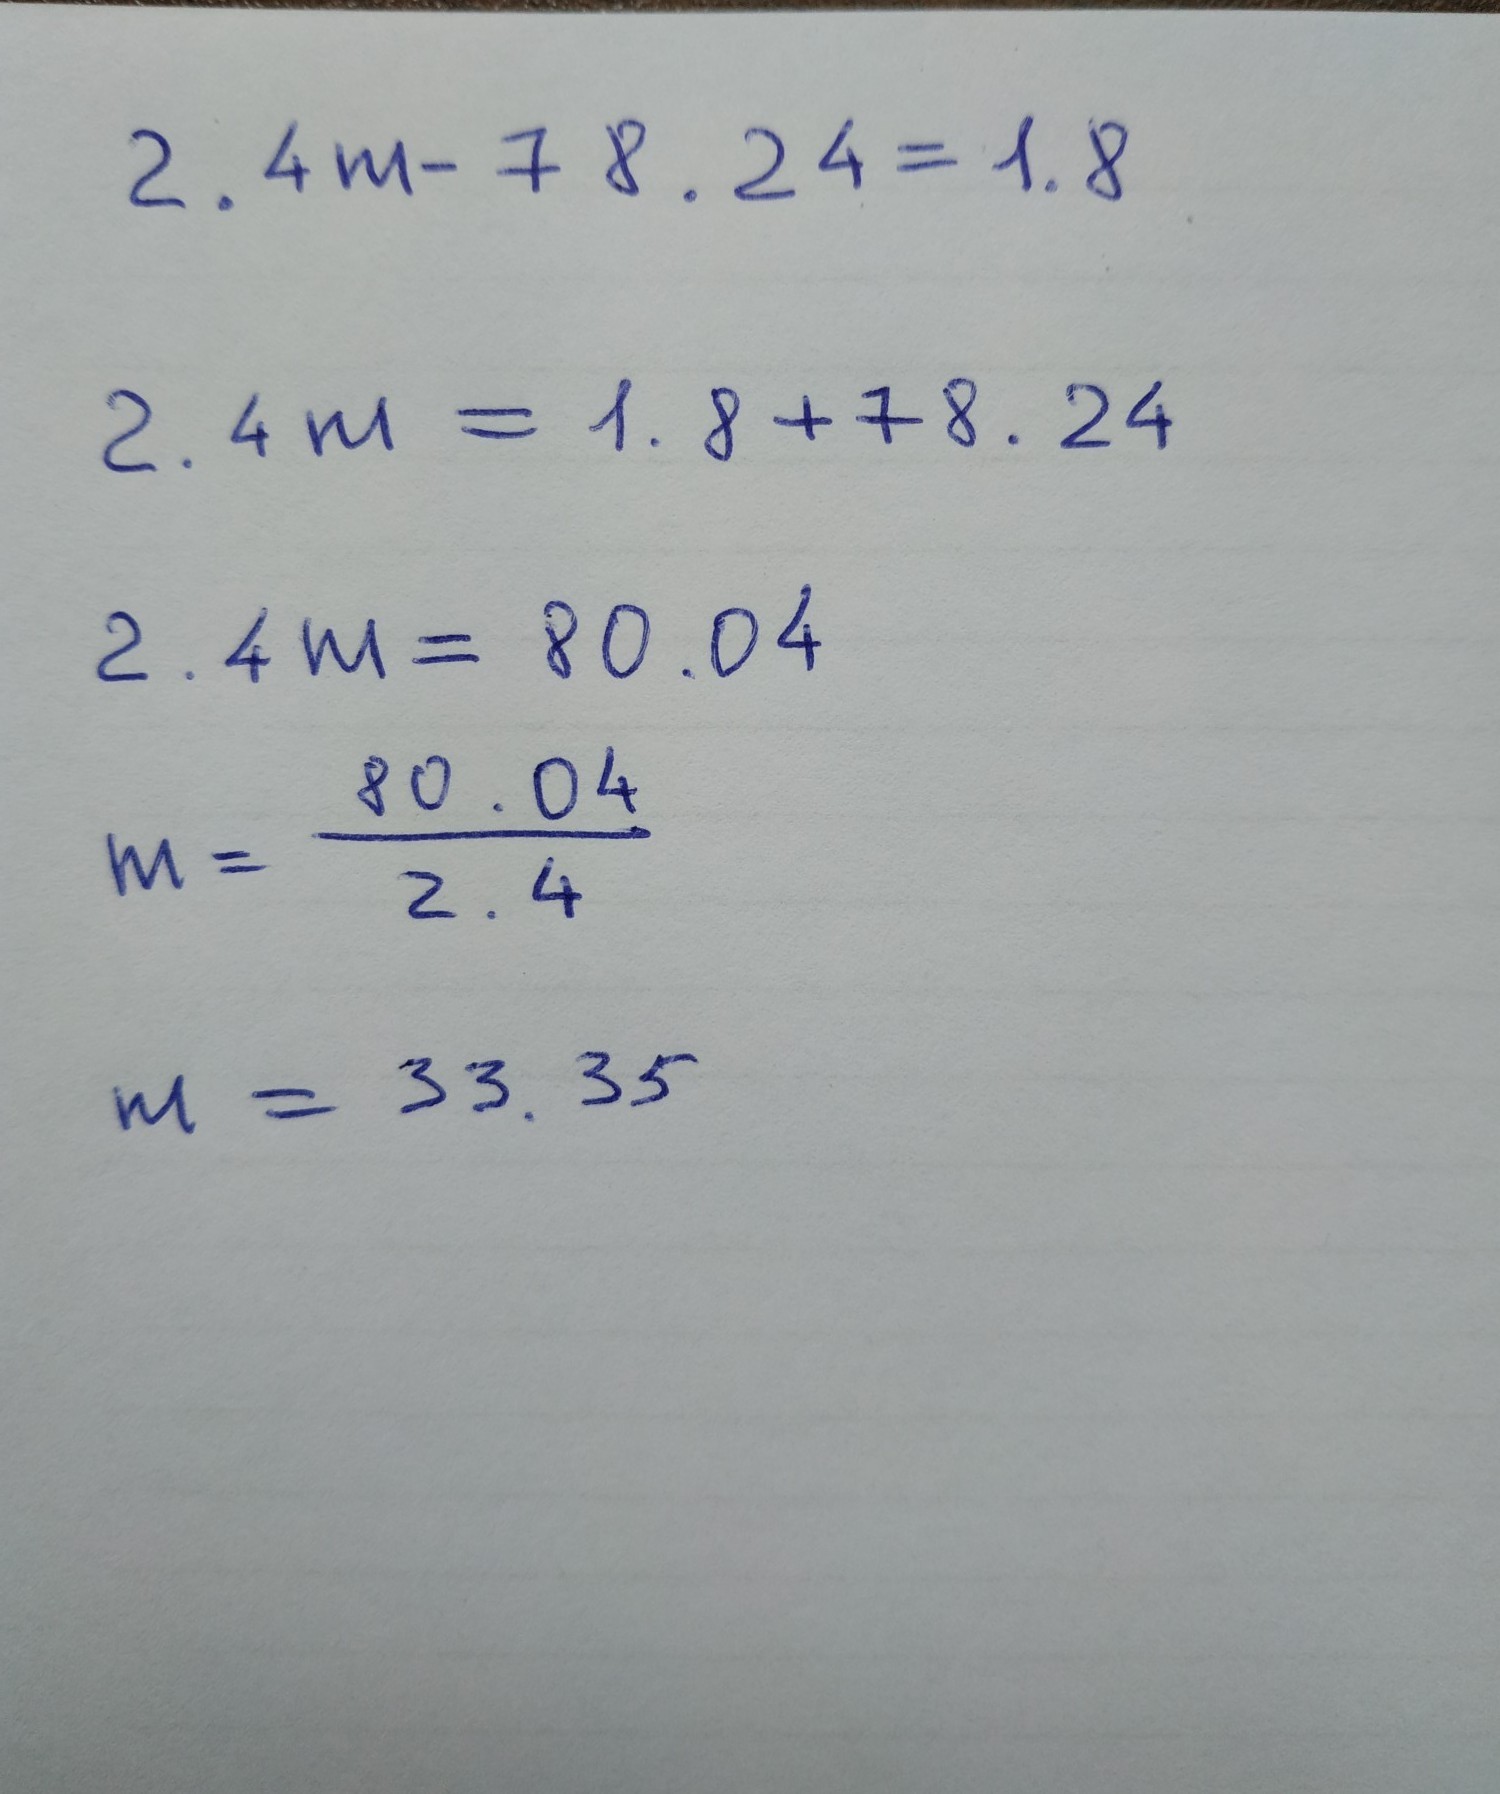 2.4m-78.24=1.8
2.4m = 1.8+78.24
2.4m = 80.04
80.04
m = ———
2.4
m = 33.35